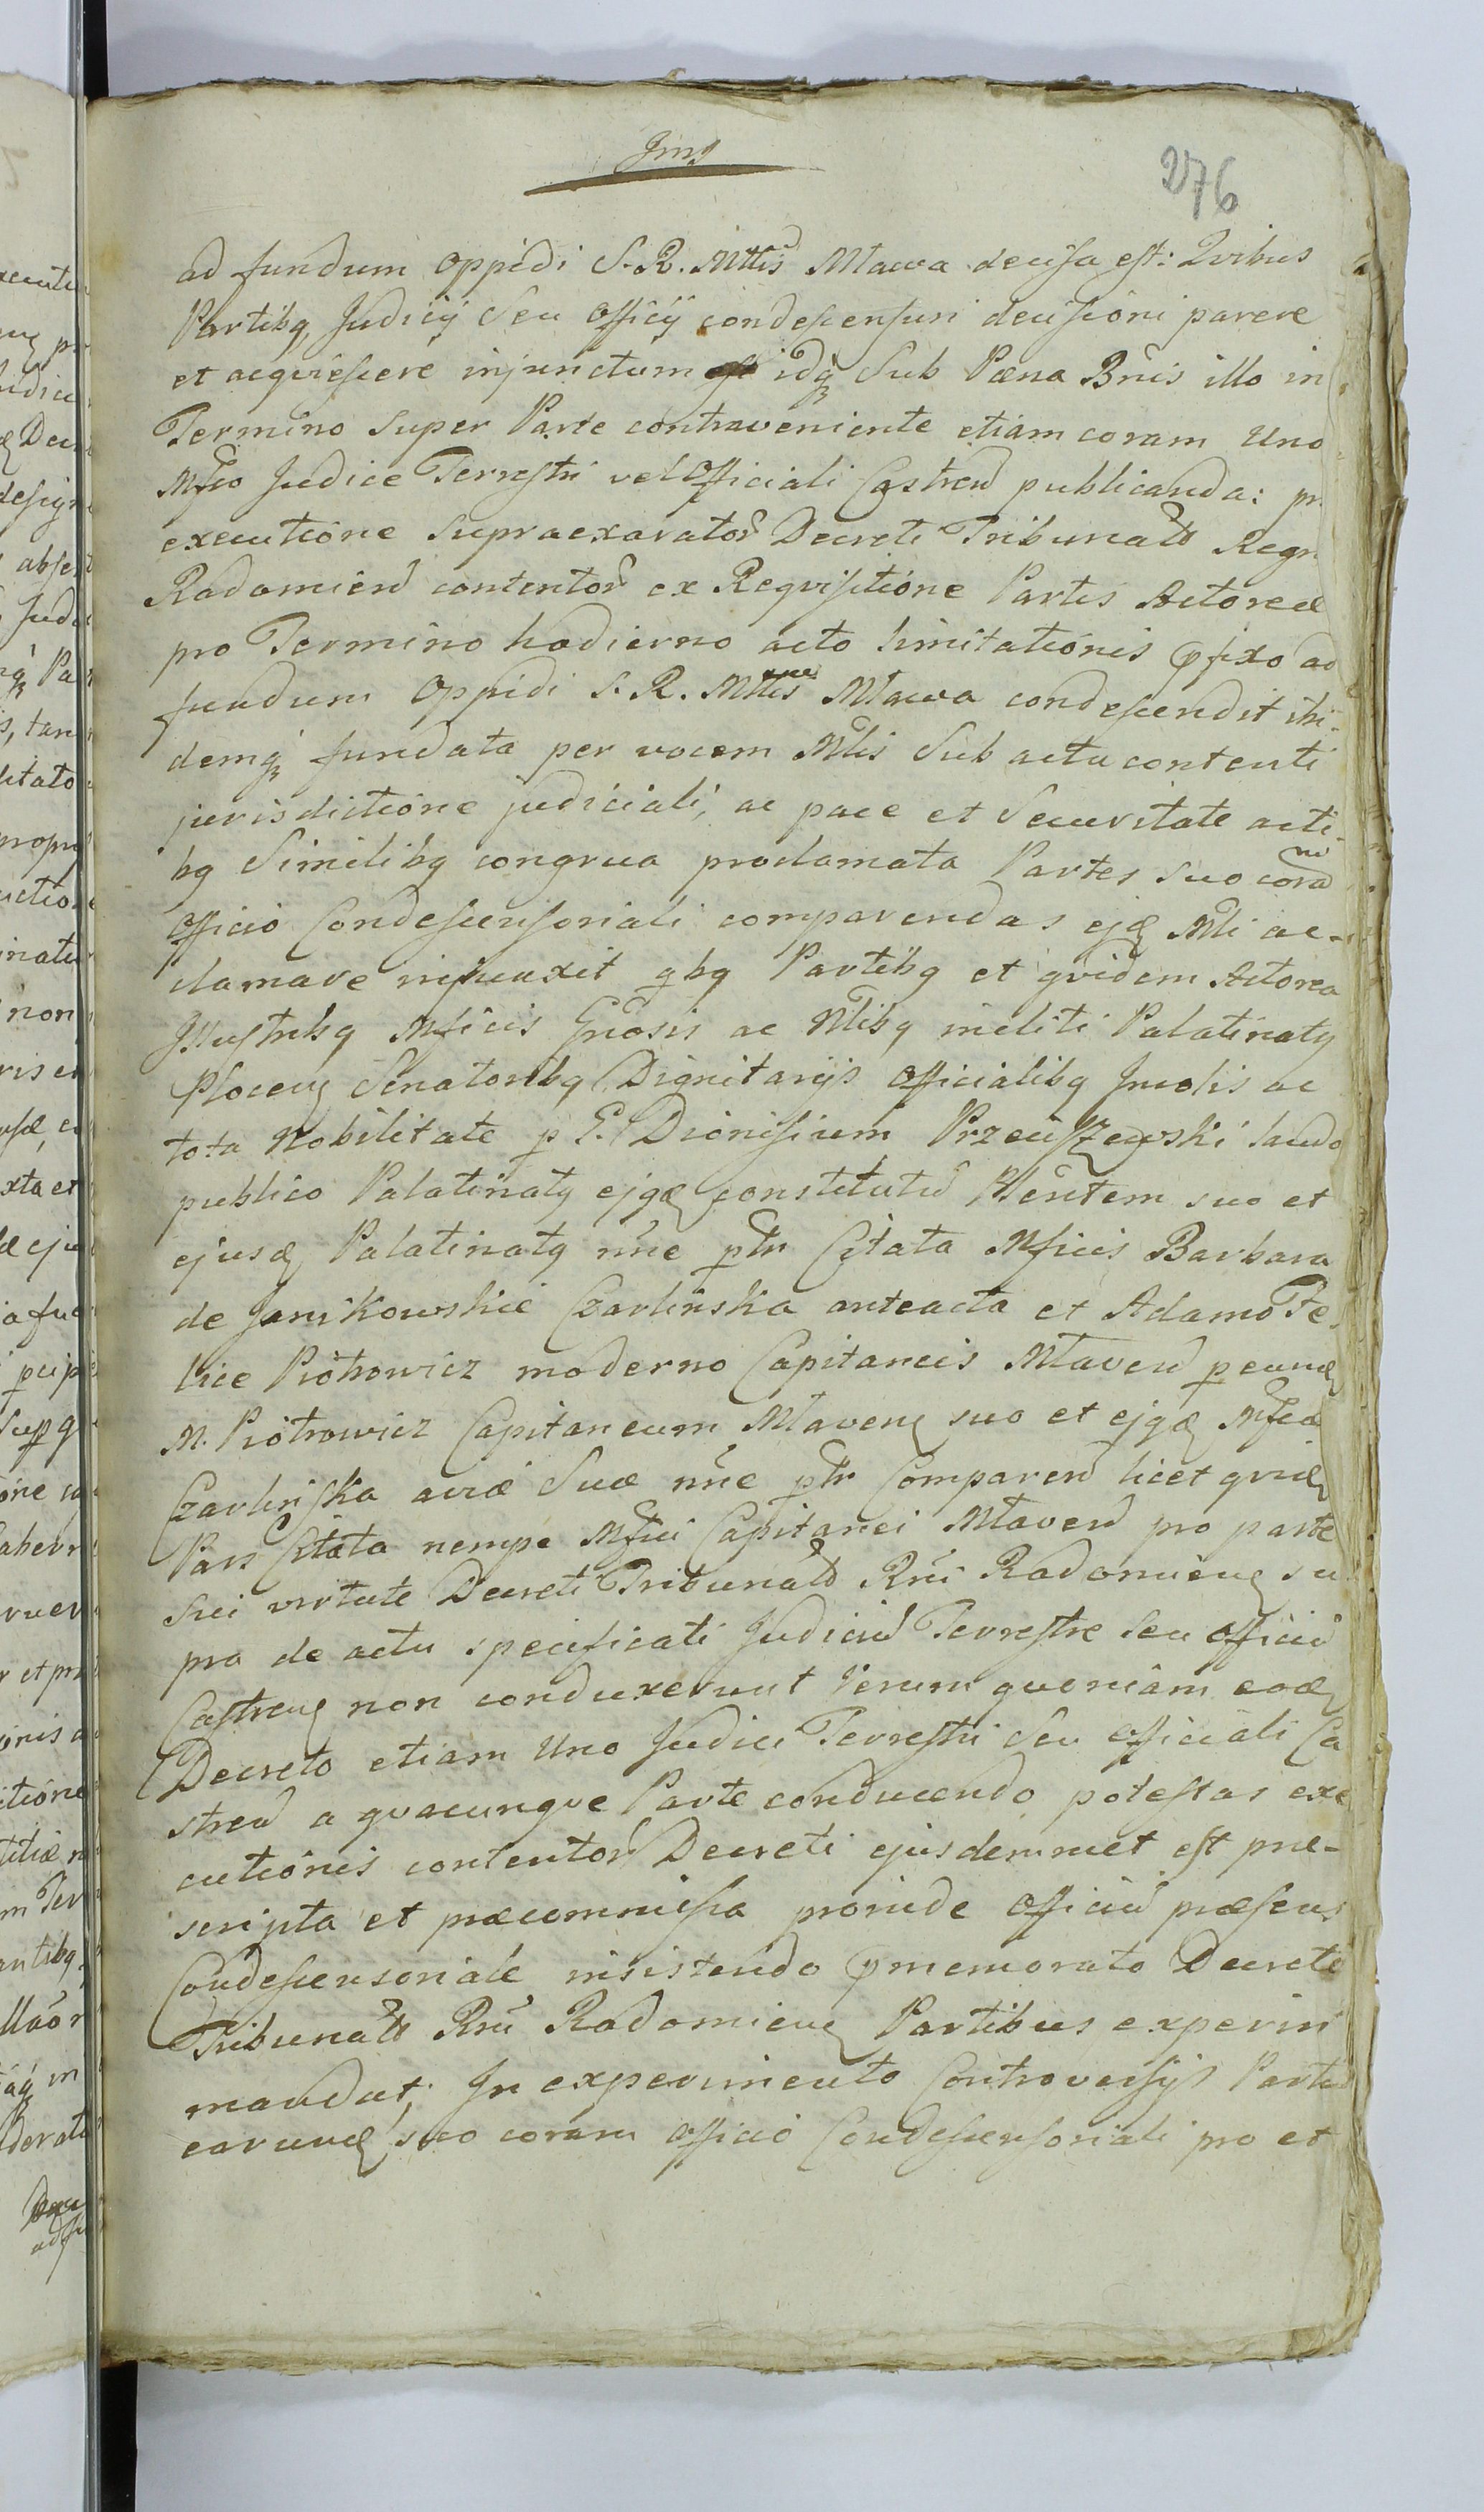 276
ad fundum Oppidi S. R. Mttis Mlawa decisa est: Qvibus
Partibq, Judicij Seu Officij condescensuri decisioni parere
et acqviescere injunctum idq Sub Pæna Bnis illo in
Termino Super Parte contraveniente etiam coram Uno
Mfco Judice Terrestri vel Officiali Castren publicanda: pr
executione Supraexarator Decreti Tribunal Regn
Radomien contentor ex Reqvisitione Partis Actoreæ
pro Termino hodierno acto limitationis pfixo ad
fundum Oppidi S. R. Mttis Mlawa condescendit ibi-
demq fundata per vocem Mlis Sub actu contenti
jurisdictione judiciali, ac pace et Securitate acti-
bq Similibq congrua proclamata Partes Suo cora
Officio Condescensoriali comparendas ejq Mli ac-
clamare injunxit qbq Partibq et qvidem Actorea
Illustribq Mficis Gnosis ac Nlibq incliti Palatinatq
Plocen Senatoribq Dignitarijs Officialibq Incolis ac
tota Nobilitate p G. Dionisium Przeciszewski laudo
publico Palatinatq ejqæ constitutu Plenitem suo et
ejusd Palatinatq nne ptr Citata Mficis Barbara
de Janikowskie Czarlinska anteacta et Adamo Fe-
lice Piotrowicz moderno Capitaneis Mlaven peund
M. Piotrowicz Capitaneum Mlaven suo et ejqæ Mfca
Czarlinska aviæ Suæ nne ptr Comparen licet qvid
Pars Citata nempe Mfici Capitanei Mlaven pro parte
Sui virtute Decreti Tribunal Rni Radomien su
pra de actu specificati Judiciu Terrestre seu Officiu
Castren non conduxerunt Verum qvoniam eod
Decreto etiam Uno Judici Terrestri Seu Officiali Ca
stren a qvacunqve Parte conducendo potestas exe
cutionis contentor Decreti ejusdemmet est præ-
scripta et præcommissa proinde Officiu præsens
Condescensoriale insistendo pmemorato Decreto
Tribunal Rni Radomien Partibus experiri
mandat; In experimento Controversijs Partiu
earund suo coram Officio Condescensoriali pro et